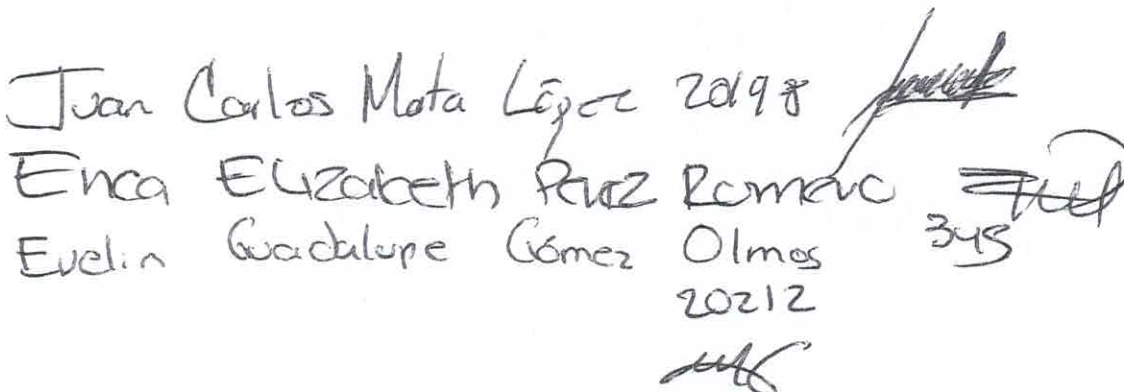 Juan Carlos Mota López 20198
Erica Elizabeth Pérez Romero
Evelin Guadalupe Gómez Olmos 345
20212